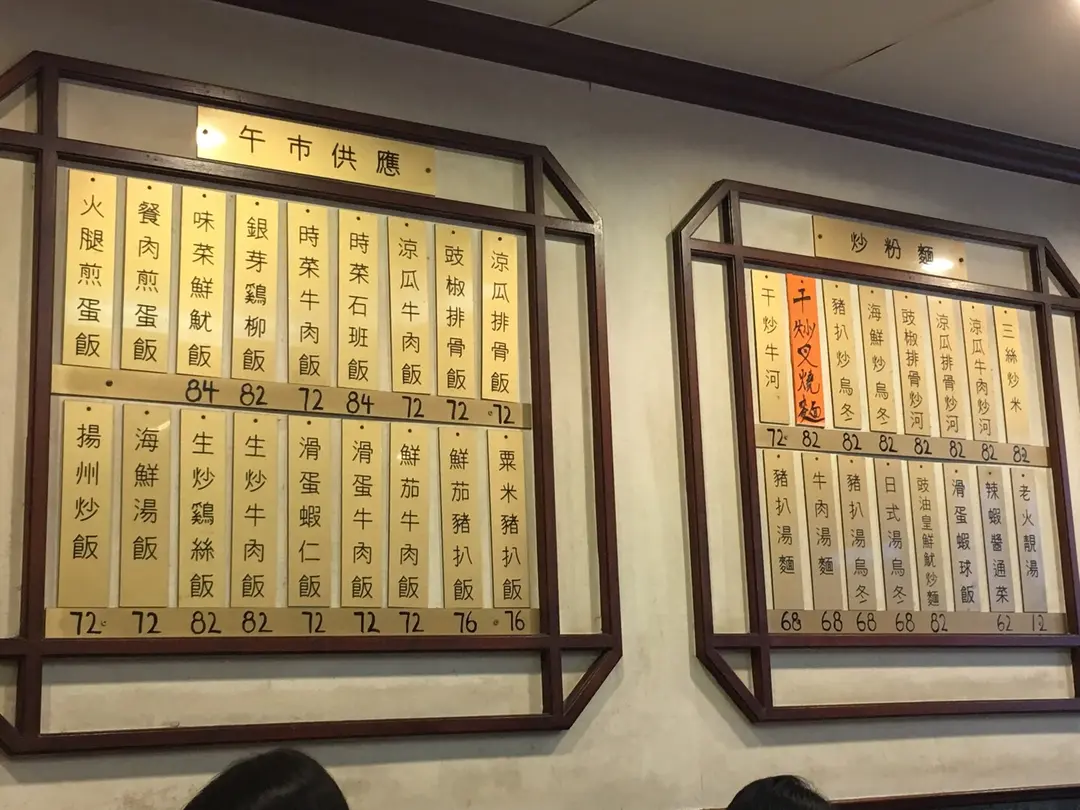 午市供應
火腿煎蛋飯
餐肉煎蛋飯
味菜鮮魷飯
銀芽鷄柳飯
時菜牛肉飯
時菜石班飯
涼瓜牛肉飯
豉椒排骨飯
涼瓜排骨飯
84 82 72 84 72 72 72
揚州炒飯
海鮮湯飯
生炒鷄絲飯
生炒牛肉飯
滑蛋蝦仁飯
滑蛋牛肉飯
鮮茄牛肉飯
鮮茄豬扒飯
粟米豬扒飯
72 72 82 82 72 72 72 76 76
炒粉麵
干炒牛河
干炒叉燒麵
豬扒炒烏冬
海鮮炒烏冬
豉椒排骨炒河
涼瓜排骨炒河
涼瓜牛肉炒河
三絲炒米
72 82 82 82 82 82 82 82
豬扒湯麵
牛肉湯麵
豬扒湯烏冬
日式湯烏冬
豉油皇鮮魷炒麵
滑蛋蝦球飯
辣蝦醬通菜
老火靚湯
68 68 68 68 82 62 12